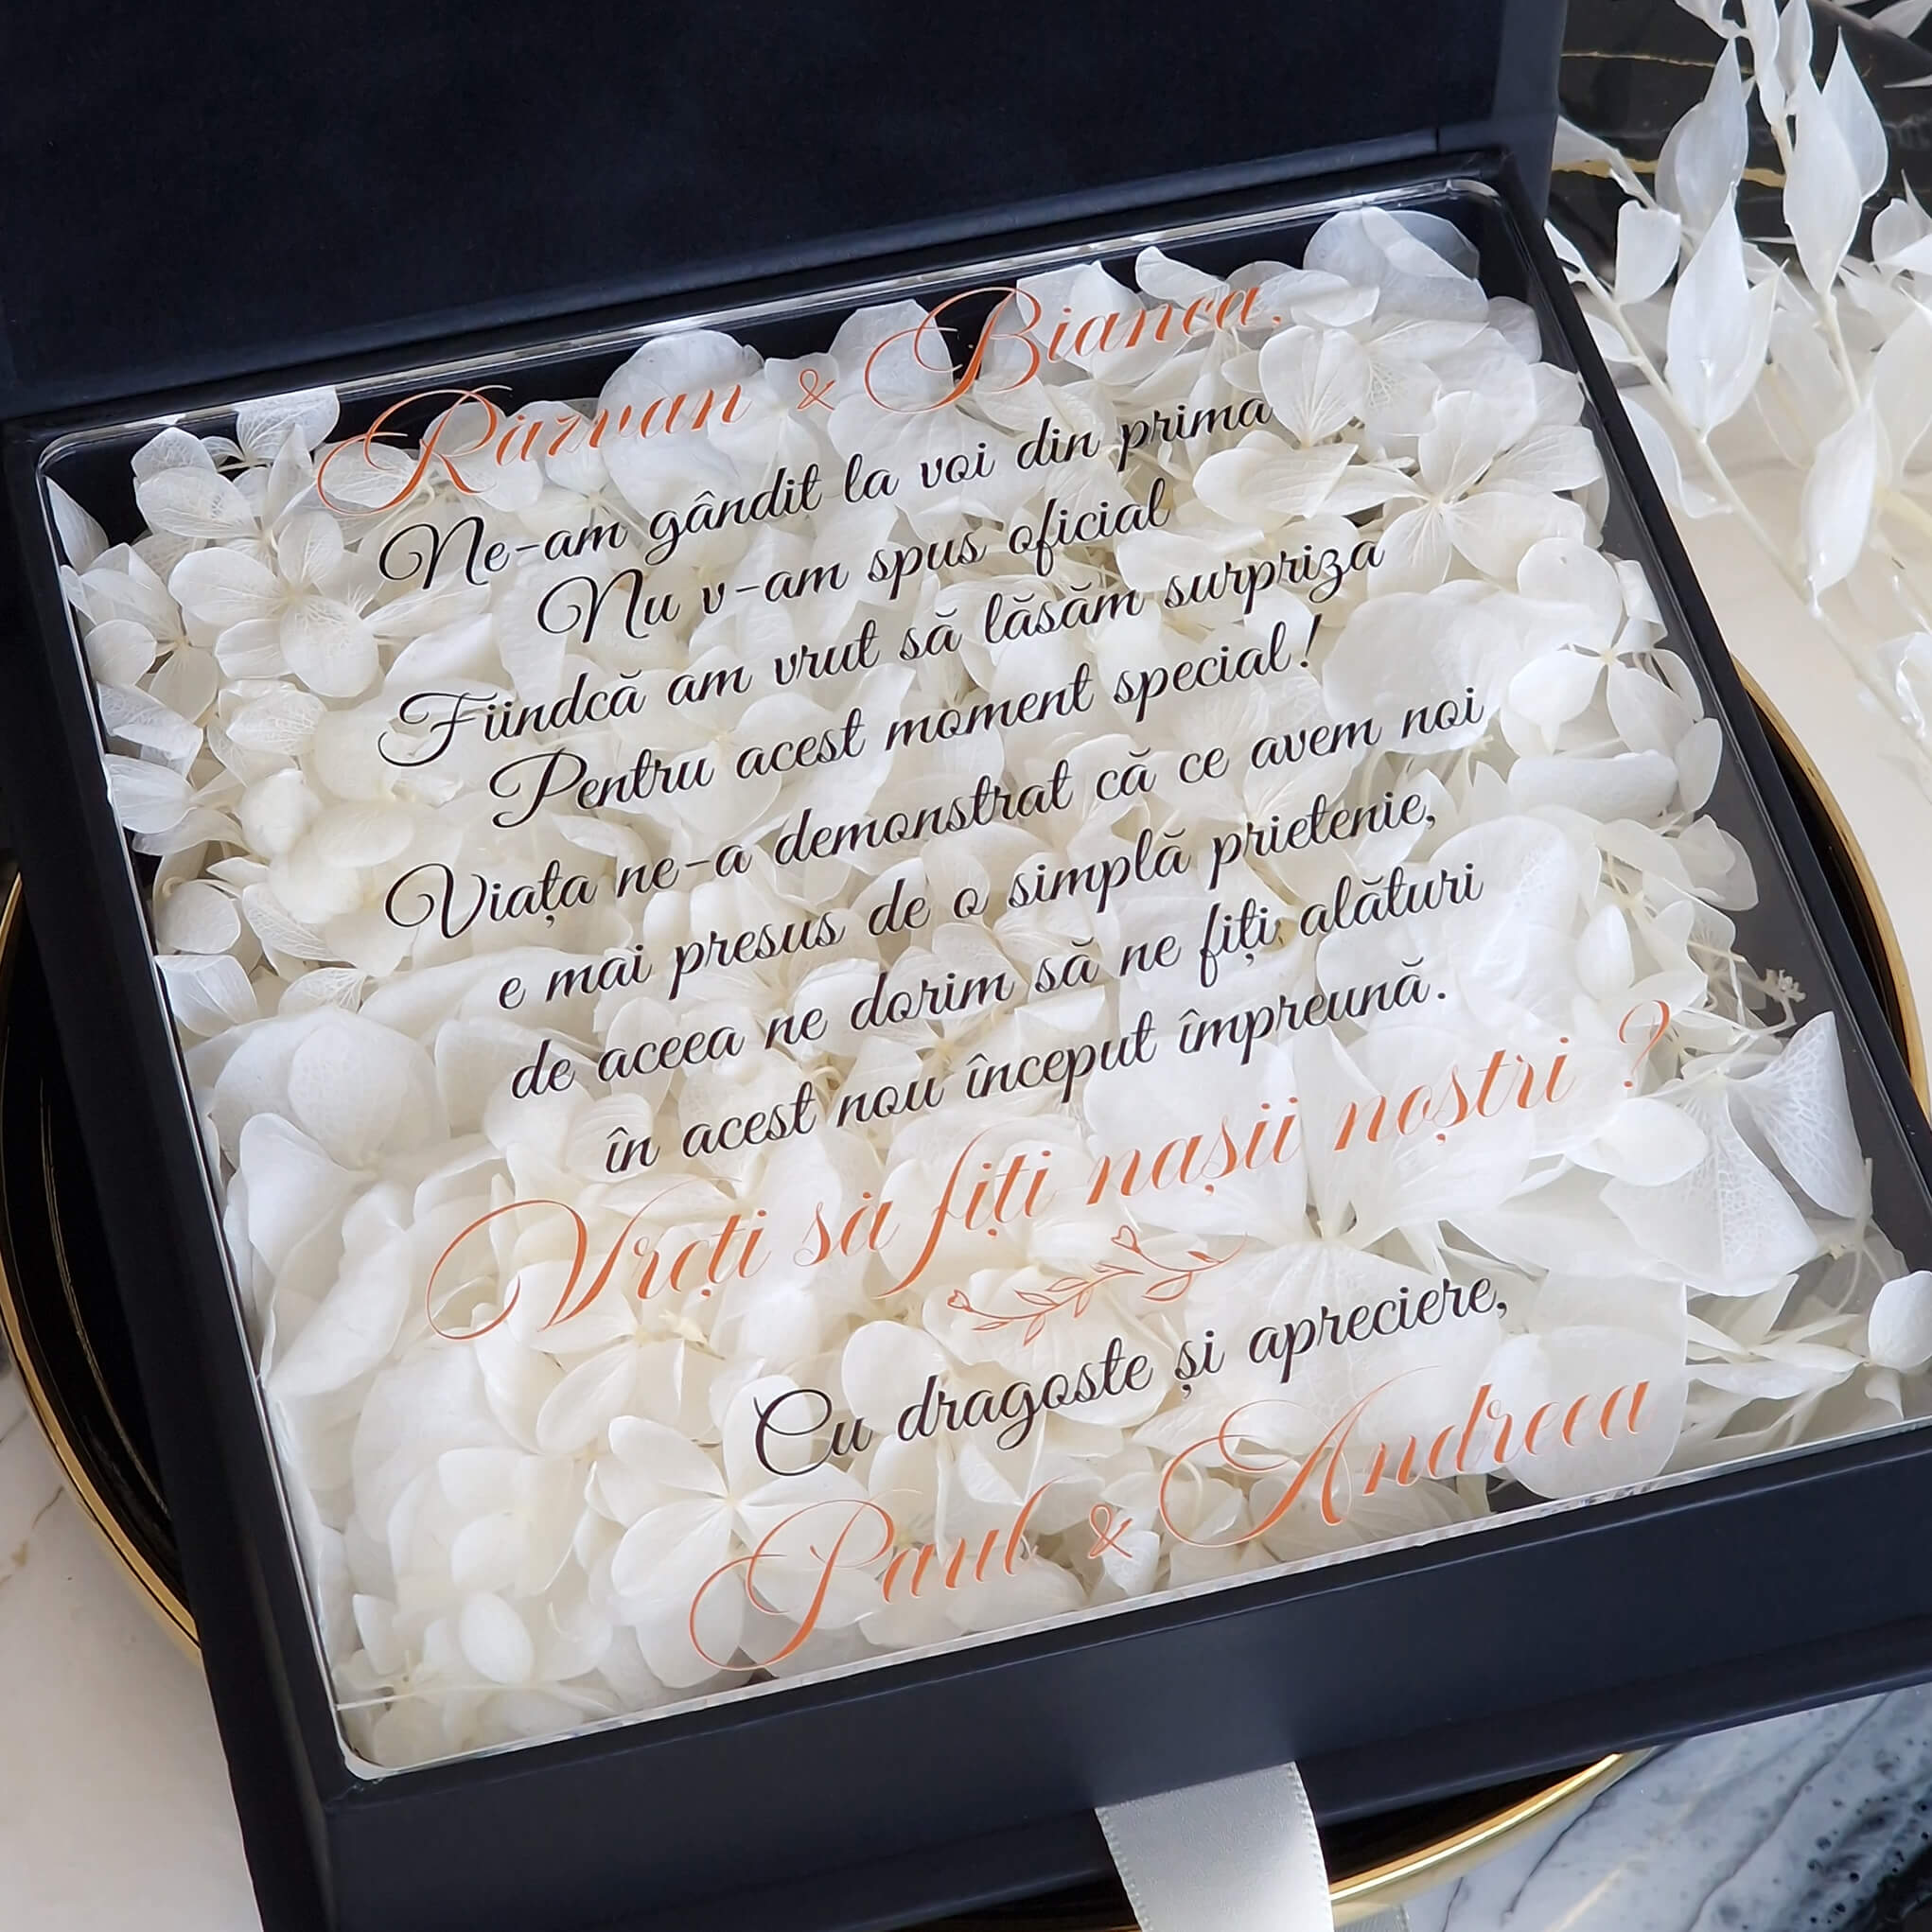 Răzvan & Bianca,
Ne-am gândit la voi din prima
Nu v-am spus oficial
Fiindcă am vrut să lăsăm surpriza
Pentru acest moment special!
Viața ne-a demonstrat că ce avem noi
e mai presus de o simplă prietenie,
de aceea ne dorim să ne fiți alături
în acest nou început împreună.
Vreți să fiți nașii noștri ?
Cu dragoste și apreciere,
Paul & Andreea